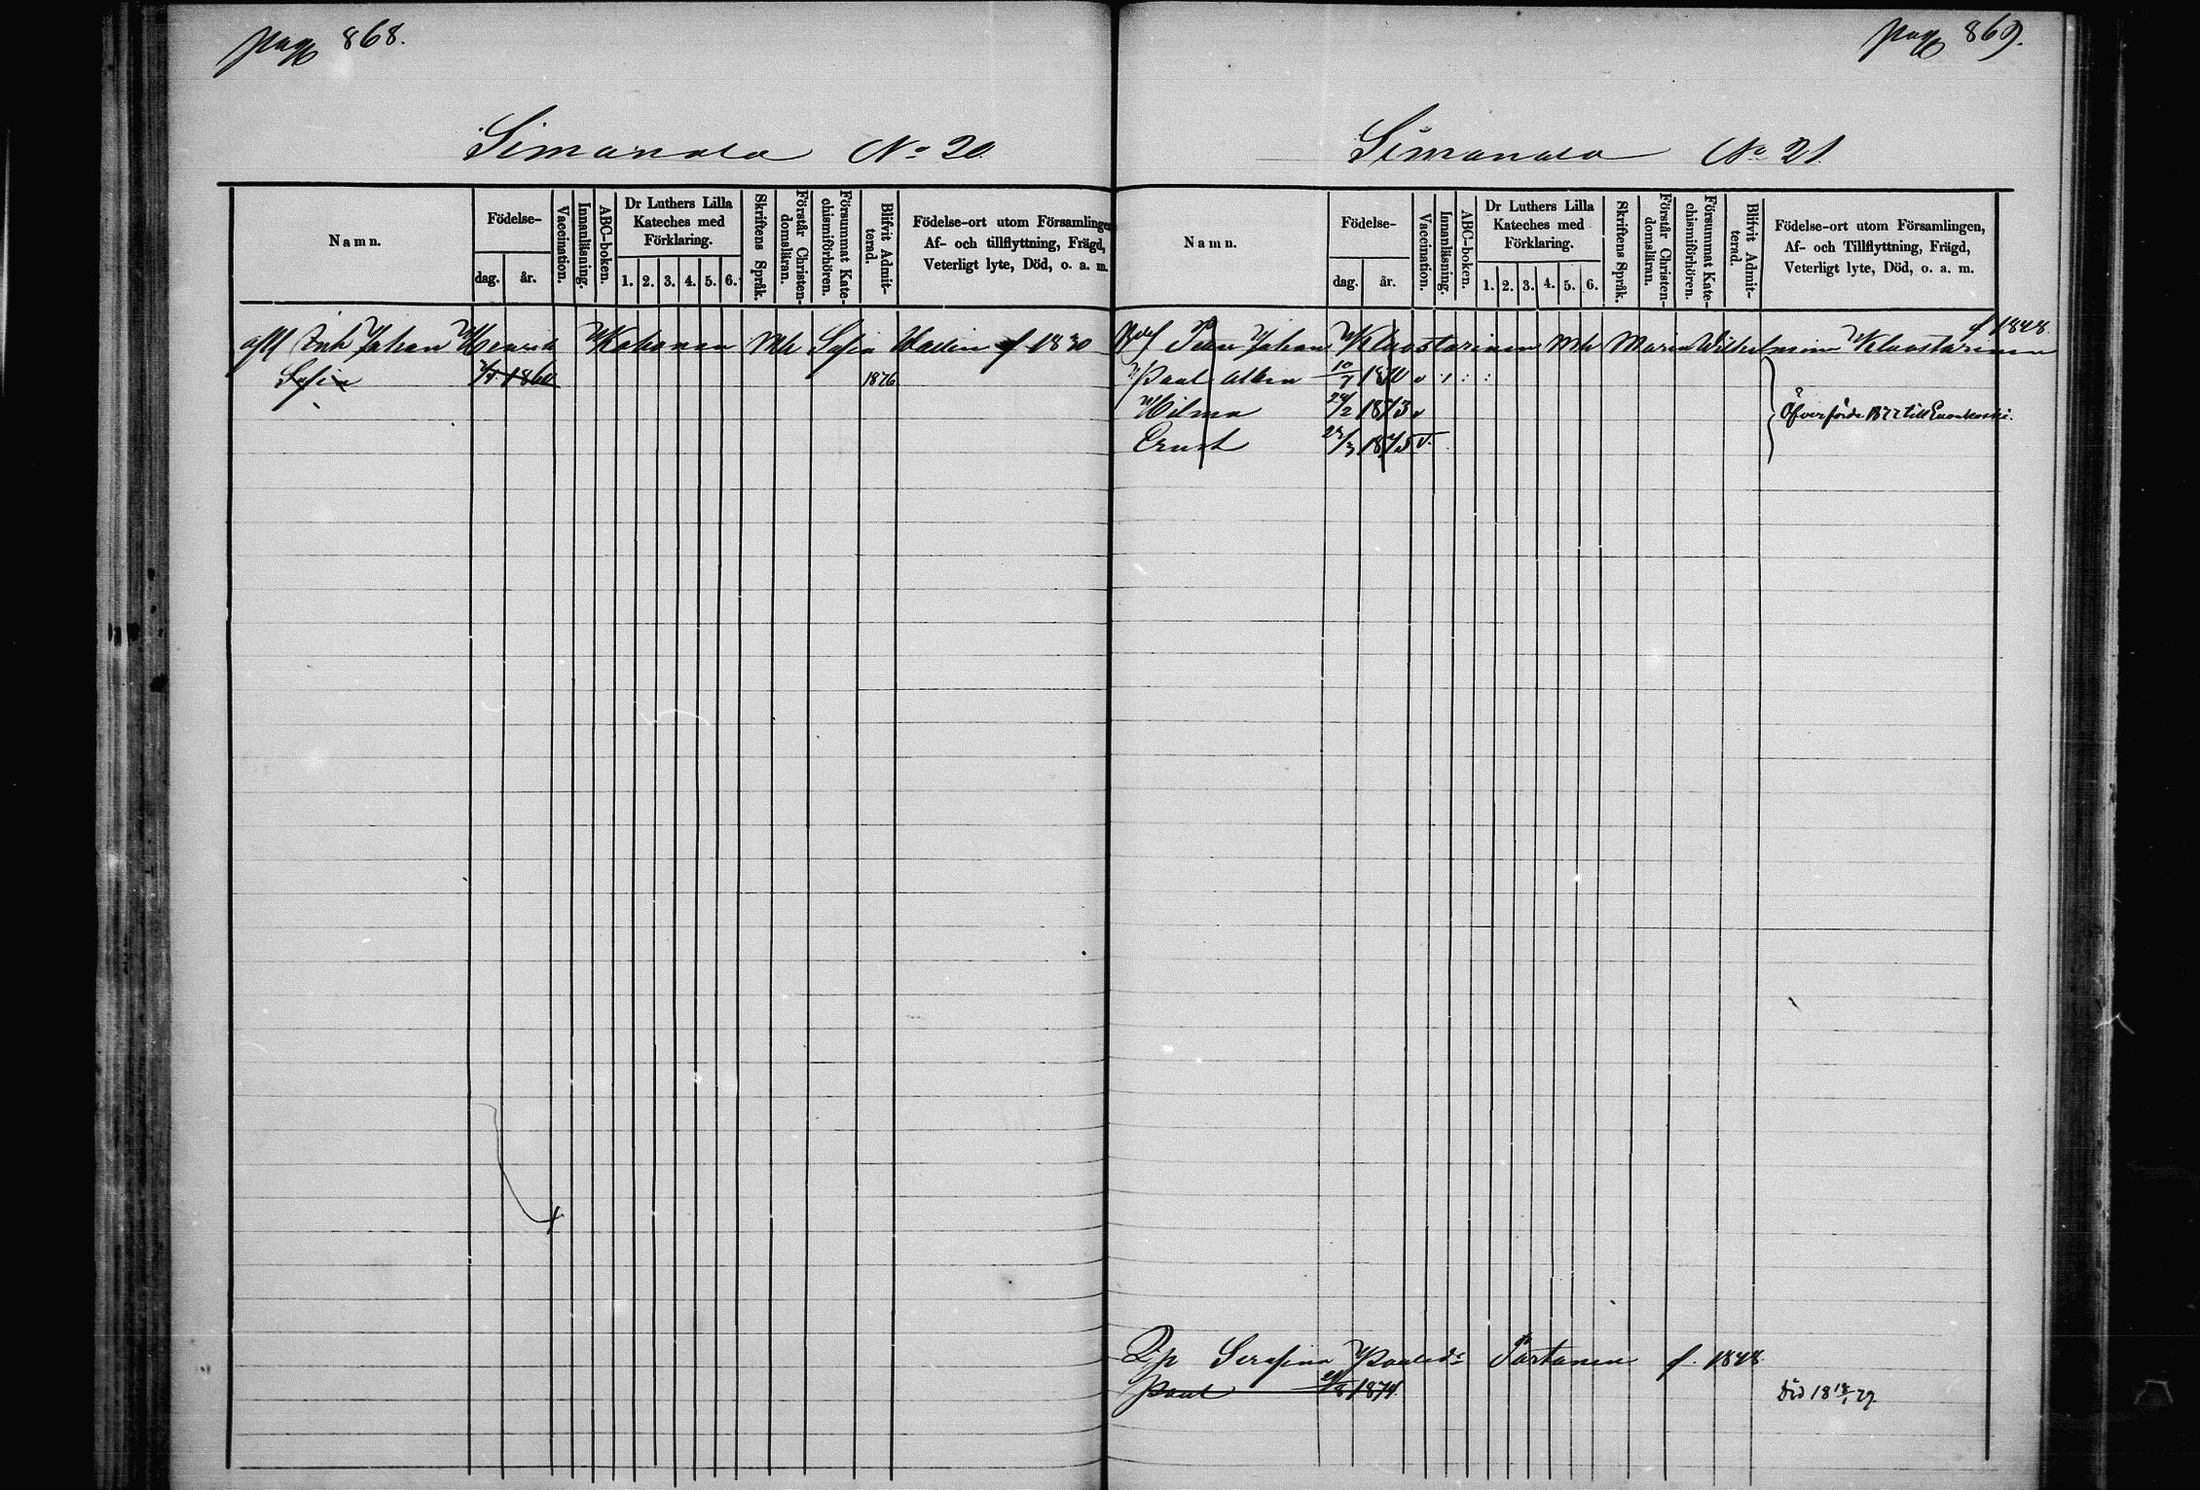 pag 868.
Simanala No 20.
Namn.
Födelse-
dag.
år.
Vaccination.
Innanläsning.
ABC-boken.
Dr Luthers Lilla
Kateches med
Förklaring.
1. 2. 3. 4. 5. 6.
Skriftens Språk.
Förstår Christen-
domsläran.
Försummat Kate-
chismiförhören.
Blifvit Admit-
terad.
Födelse-ort utom Församlingen
Af- och tillflyttning, Frägd,
Veterligt lyte, Död, o. a. m.
Johan Henrik Kohonen Mh Sofia f 1830
Sofia 1860 1876
pag 869.
Simanala No 21
Namn.
Födelse-
dag.
år.
Vaccination.
Innanläsning.
ABC-boken.
Dr Luthers Lilla
Kateches med
Förklaring.
1. 2. 3. 4. 5. 6.
Skriftens Språk.
Förstår Christen-
domsläran.
Försummat Kate-
chismiförhören.
Blifvit Admit-
terad.
Födelse-ort utom Församlingen,
Af- och Tillflyttning, Frägd,
Veterligt lyte, Död, o. a. m.
Johan Kloostarinen Mh Maria Wilhelmina Kloostarinen f 1848
Paul Albin 10/7 1870 v
Hilma 24/2 1873 v
Öfverförde 1877 till Enonkoski.
Ernst 1875 v.
Qp Serafina Paulsdr Partanen f. 1848.
Paul 1874.
Död